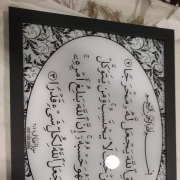 الله يجعل له مخرجا ٢
لا يحتسب ومن يتوكل
فهو حسبه إن الله بالغ أمره
جعل الله لكل شيء قدرا ٣